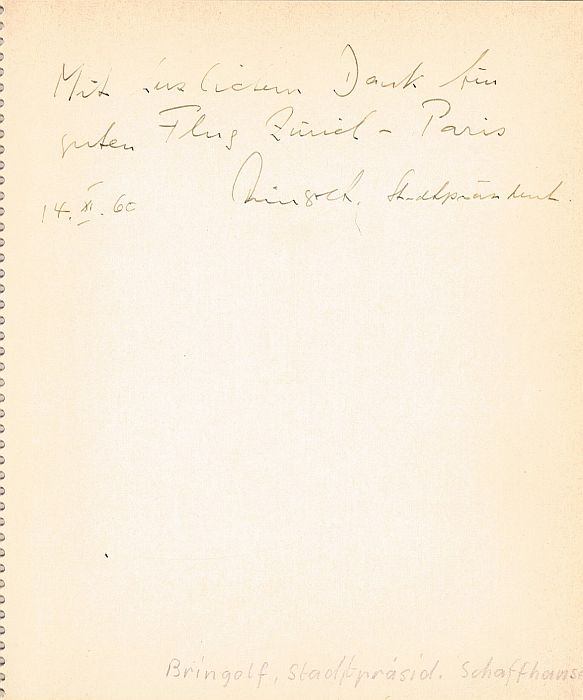 Mit herzlichem Dank für
guten Flug Zürich - Paris
14. XI. 60 Bringolf, Stadtpräsident.
Bringolf, Stadtpräsid. Schaffhaus